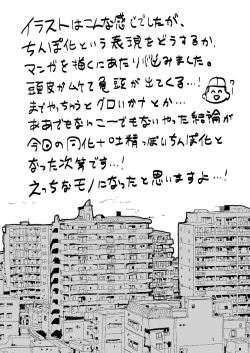 イラストはこんな感じでしたが、
ちんぽ化という表現をどうするか、
マンガを描くにあたり悩みました。
頭皮がムケて亀頭が出てくる…!
までやっちゃうとグロいかナとか…
ああでもないこーでもないやった結論が
今回の同化+吐精っぽいちんぽ化と
なった次第です…!
えっちなモノになったと思いますよ…!